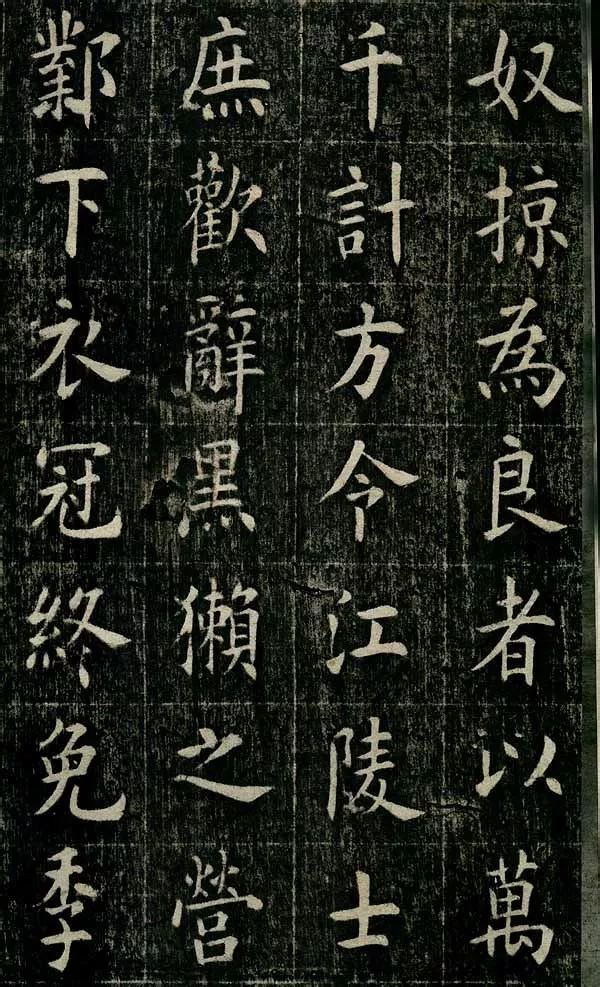 奴掠為良者以萬
千計方今江陵士
庶歡辭黑獺之營
鄴下衣冠終免季